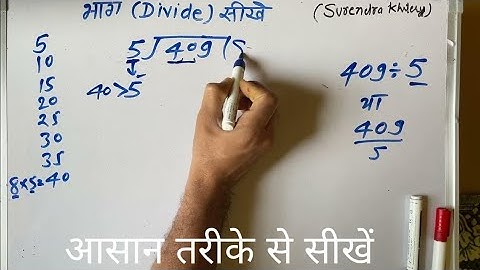 भाग (Divide) सीखे
(Surendra Khilery)
5
10
15
20
25
30
35
8×5=40
5)409(
40>5
409÷5
या
409
5
आसान तरीके से सीखें